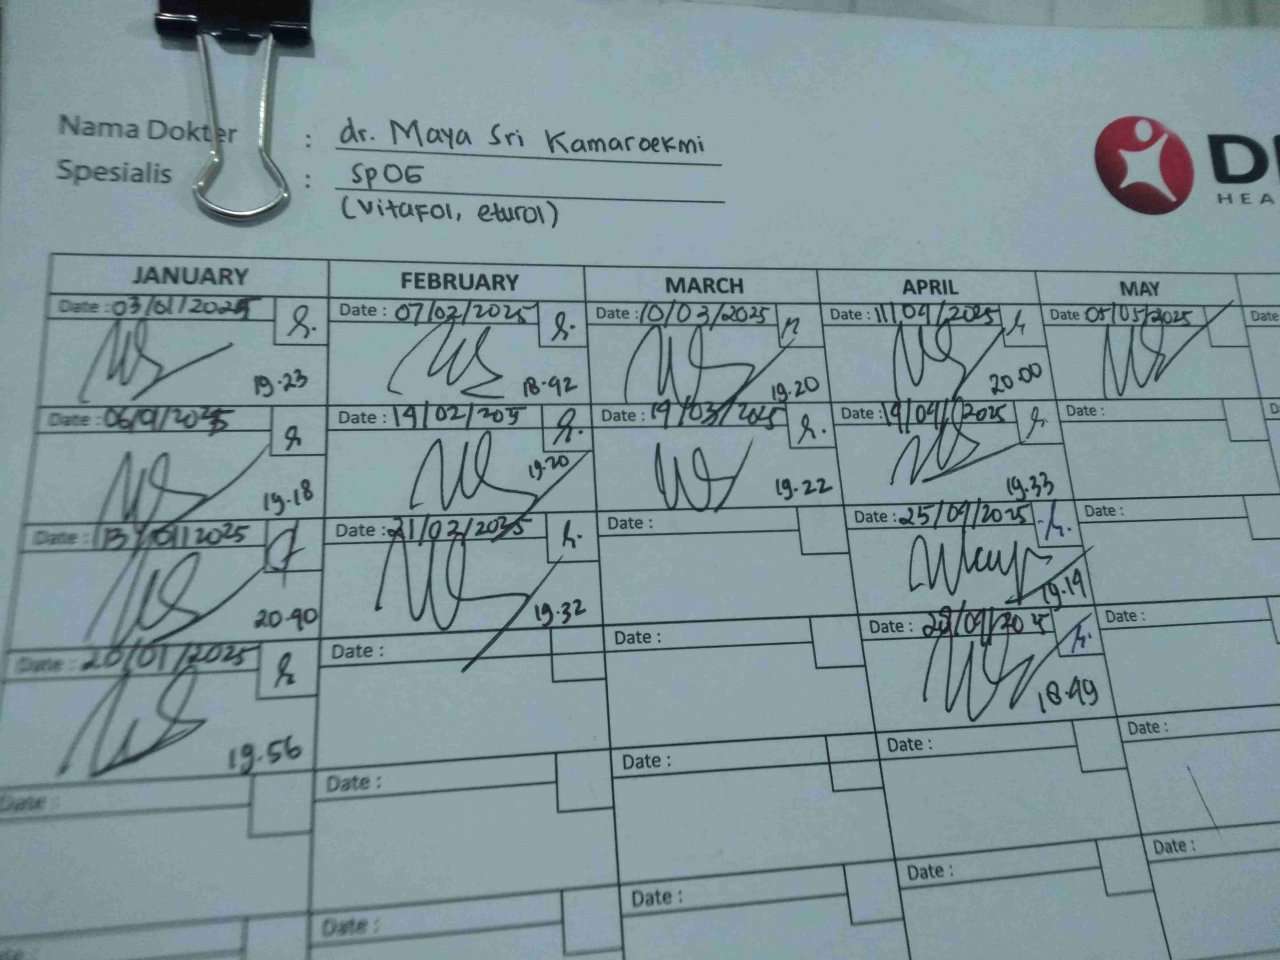 Nama Dokter : dr. Maya Sri Kamaroekmi
Spesialis : SpOG
(Vitafol, eturol)
HEA
JANUARY FEBRUARY MARCH APRIL MAY
Date : 03/01/2025 Date : 07/02/2025 Date : 10/03/2025 Date : 11/04/2025 Date 05/05/2025 Date
19.23 18.42 19.20 20.00
Date : 06/ Date : 14/02/2025 Date : 19/03/2025 Date : 19/04/2025 Date :
19.18 19.20 19.22 19.33
Date : 13/01/2025 Date : 21/02/2025 Date : Date : 25/04/2025 Date :
20.40 19.32 19.19
Date : 20/01/2025 Date : Date : Date : 28/04/2025 Date :
19.56 18.49
Date : Date : Date : Date : Date :
Date : Date : Date : Date :